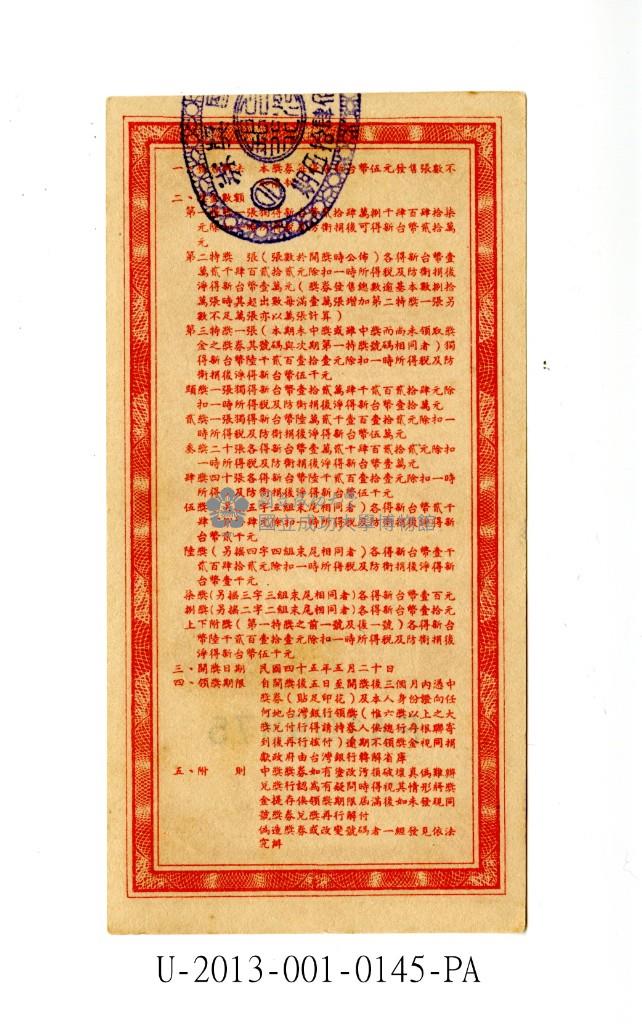 本獎券 台幣伍元發售張數不
二、 數額
第 一張獨得新台幣 拾肆萬捌千肆百肆拾柒
元除 一時所得稅及防衛捐後可得新台幣貳拾萬
元
第二特獎　張(張數於開獎時公佈)各得新台幣壹
萬貳千肆百貳拾貳元除扣一時所得稅及防衛捐後
淨得新台幣壹萬元(獎券發售總數逾基本數捌拾
萬張時其超出數每滿壹萬張增加第二特獎一張另
數不足萬張亦以萬張計算)
第三特獎一張(本期未中獎或雖中獎而尚未領取獎
金之獎券其號碼與次期第一特獎號碼相同者)獨
得新台幣陸千貳百壹拾壹元除扣一時所得稅及防
衛捐後淨得新台幣伍千元
頭獎一張獨得新台幣壹拾貳萬肆千貳百貳拾肆元除
扣一時所得稅及防衛捐後淨得新台幣壹拾萬元
貳獎一張獨得新台幣陸萬貳千壹百壹拾貳元除扣一
時所得稅及防衛捐後淨得新台幣伍萬元
叁獎二十張各得新台幣壹萬貳千肆百貳拾貳元除扣
一時所得稅及防衛捐後淨得新台幣壹萬元
肆獎四十張各得新台幣陸千貳百壹拾壹元除扣一時
所得稅及防衛捐後淨得新台幣伍千元
伍獎 五字五組末尾相同者)各得新台幣貳千
肆 元除扣一時所得稅及防衛捐後淨得新
台幣貳千元
國立成功大學博物館
陸獎(另搖四字四組末尾相同者)各得新台幣壹千
貳百肆拾貳元除扣一時所得稅及防衛捐後淨得新
台幣壹千元
柒獎(另搖三字三組末尾相同者)各得新台幣壹百元
捌獎(另搖二字二組末尾相同者)各得新台幣壹拾元
上下附獎(第一特獎之前一號及後一號)各得新台
幣陸千貳百壹拾壹元除扣一時所得稅及防衛捐後
淨得新台幣伍千元
三、開獎日期　民國四十五年五月二十日
四、領獎期限　自開獎後五日至開獎後三個月內憑中
獎券(貼足印花)及本人身份證向任
何地台灣銀行領獎(惟六獎以上之大
獎兌付行得請持券人保總行号根聯寄
到後再行核付)逾期不領獎金視同捐
獻政府由台灣銀行轉解省庫
五、附　則　中獎獎券如有塗改污損破壞真偽難辦
兌獎行認為有疑問時得視其情形將獎
金提存俟領獎期限屆滿後如未發現同
號獎券兌獎再行解付
偽造獎券或改變號碼者一經發見依法
究辦
U-2013-001-0145-PA